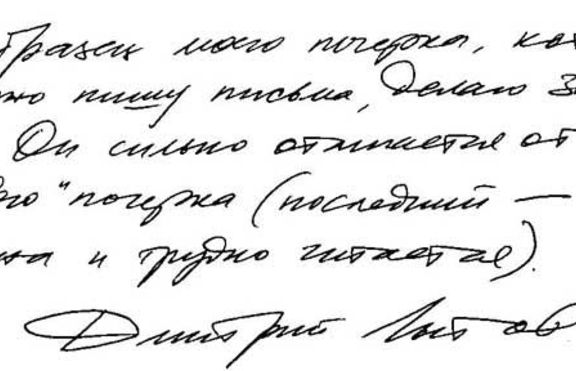 бразец моего почерка, кот
но пишу письма, делаю за
Он сильно отличается от
го" почерка (последний —
на и трудно читается).
Дмитрий